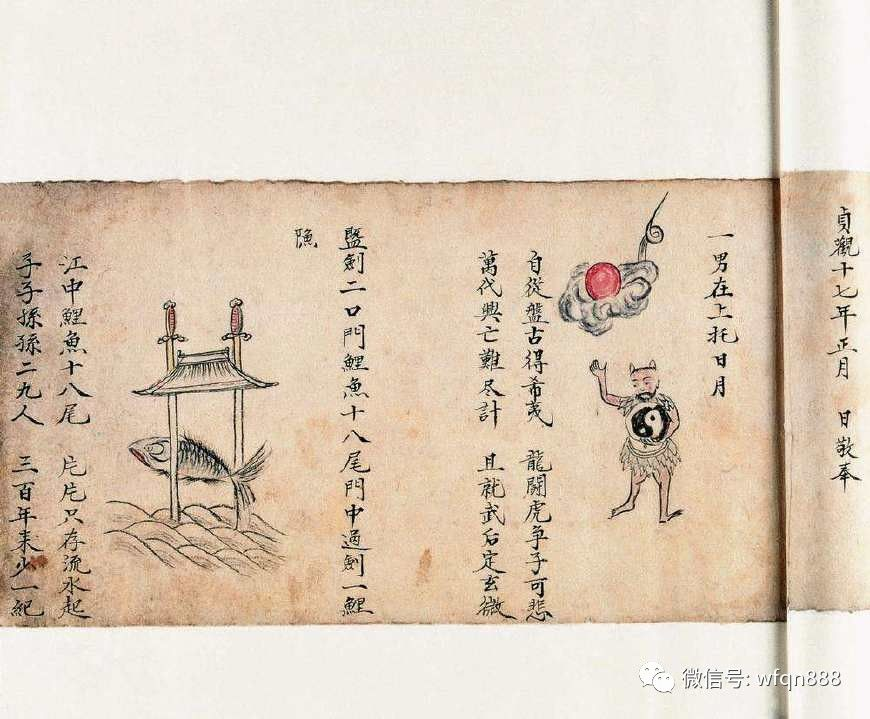 貞觀十七年正月　日敬奉
一男在上托日月
自從盤古得希夷　龍鬪虎争子可悲
萬代興亡難尽計　且就武后定玄微
竪劍二口門鯉魚十八尾門中過劍一鯉
隐
江中鯉魚十八尾　片片只存流水起
子子孫孫二九人　三百年来少一紀
微信号: wfqn888